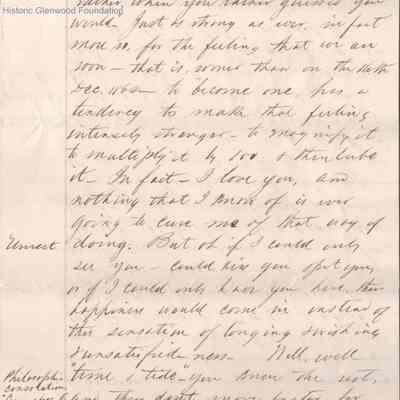 Historic Glenwood Foundation
rather, when you rather guessed you
would. Just as strong as ever, in fact
more so, for the feeling that we are
soon – that is, sooner than on the 16th
Dec. 186 – to become one, has a
tendency to make that feeling
intensely stronger – to magnify it
to multiply it by 500 & then cube
it – In fact – I love you, and
nothing that I know of is ever
going to cure me of that way of
Unrest doing. But oh if I could only
see you – could kiss you
or if I could only have you here, then
happiness would come in instead of
this sensation of longing wishing
& unsatisfied-ness – Well, well
Philosophi- "time & tide" – you know the rest,
consolation
and they don't move faster for